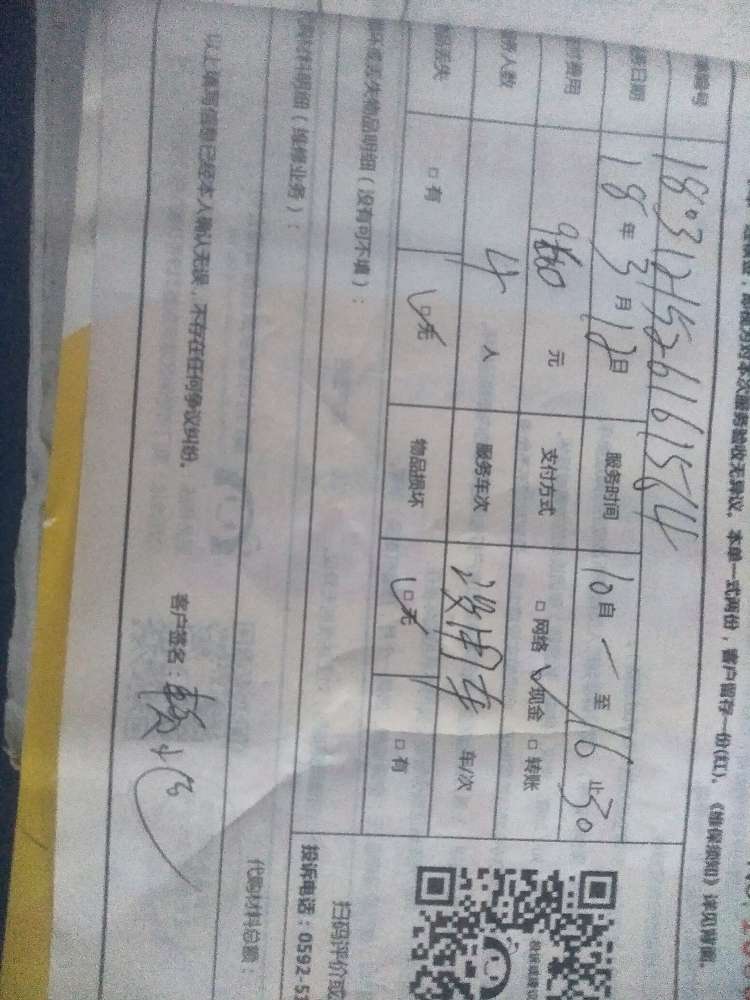 本次服务验收无异议。本单一式两份，客户留存一份(红)。《维保须知》详见背面。
编号 18031215261615 84
日期 18年3月12日 服务时间 10自 一 至 16止30
费用 元 支付方式 □网络 ☑现金 □转账
人数 4 人 服务车次 没用车 车/次
丢失 □有 ☑无 物品损坏 ☑无 □有
丢失物品明细（没有可不填）：
材料明细（维修业务）：
代购材料总额：
以上填写信息已经本人确认无误，不存在任何争议纠纷。
客户签名：
扫码评价或
投诉电话：0592-5